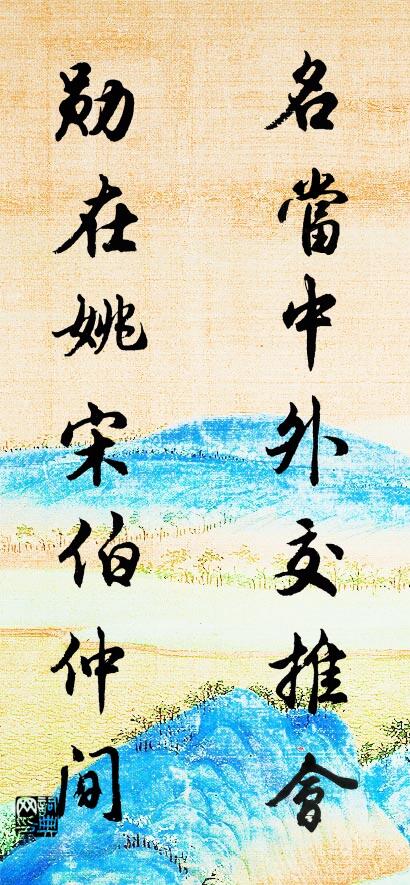 名當中外交推會
勋在姚宋伯仲間